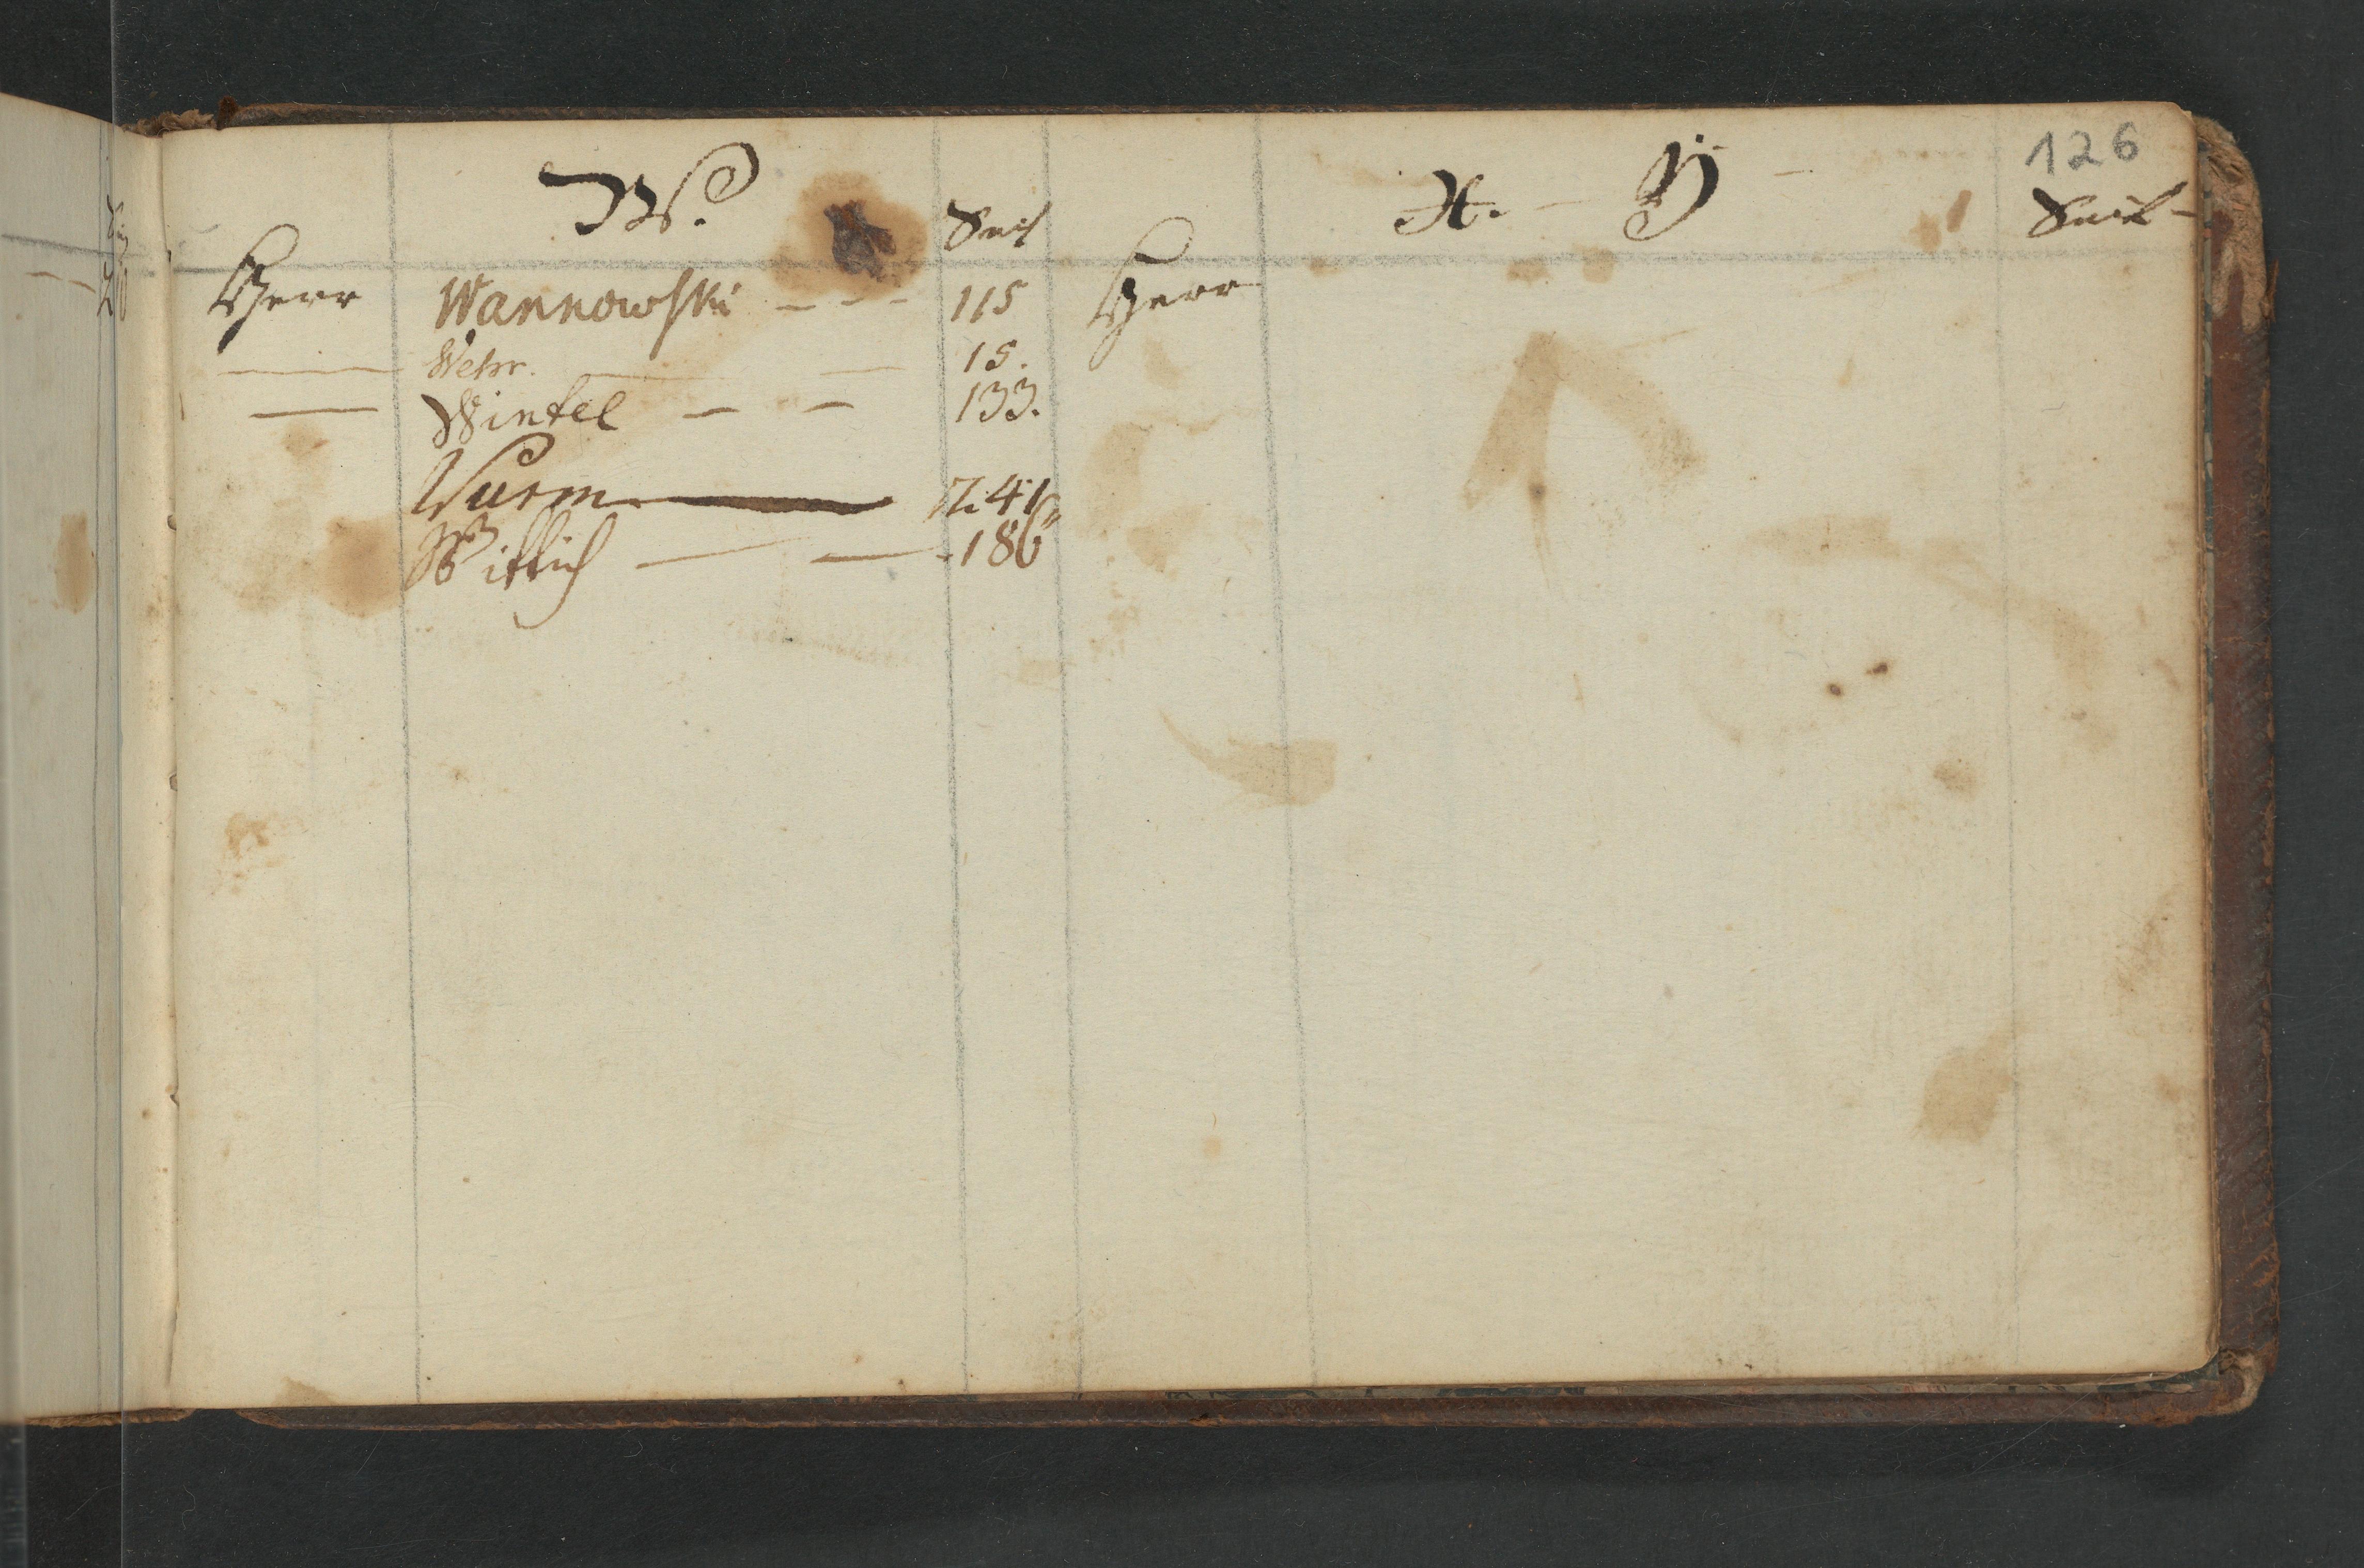 126
W. Seit
Herr Wannowski - - - 115
— Wehr. — — 15.
— Winkel — — 133.
Wurm — 241
Wittich — — 186
X. - Y - Seit -
Herr